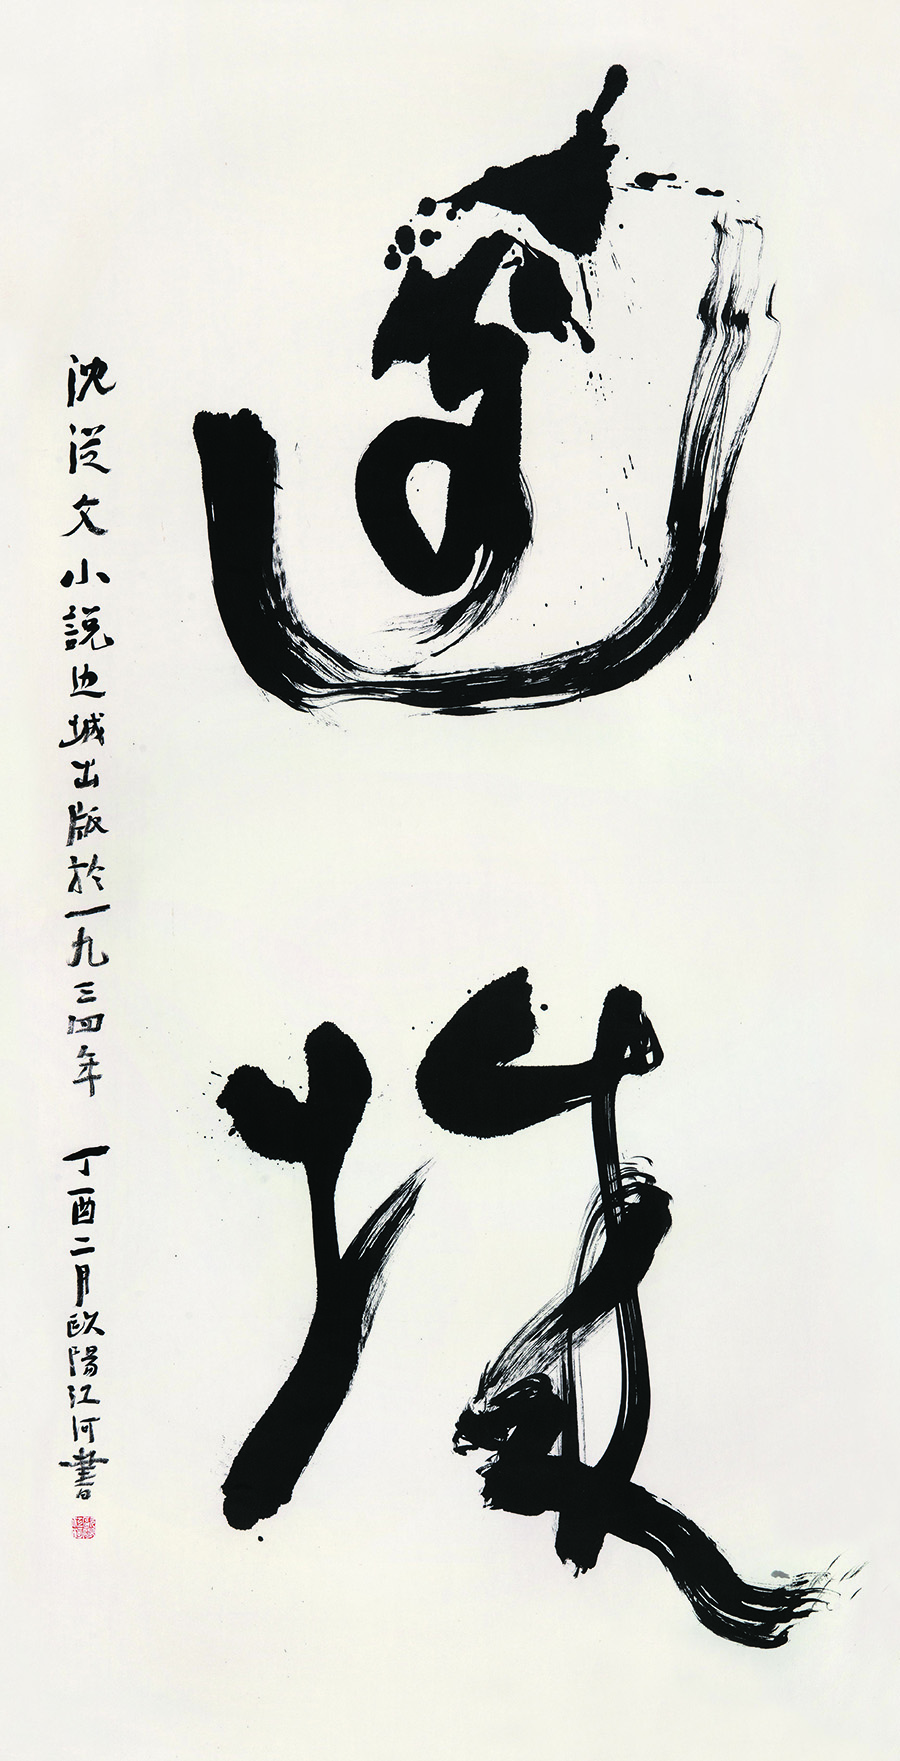 邊城
沈從文小說边城出版於一九三四年 丁酉二月歐陽江河書